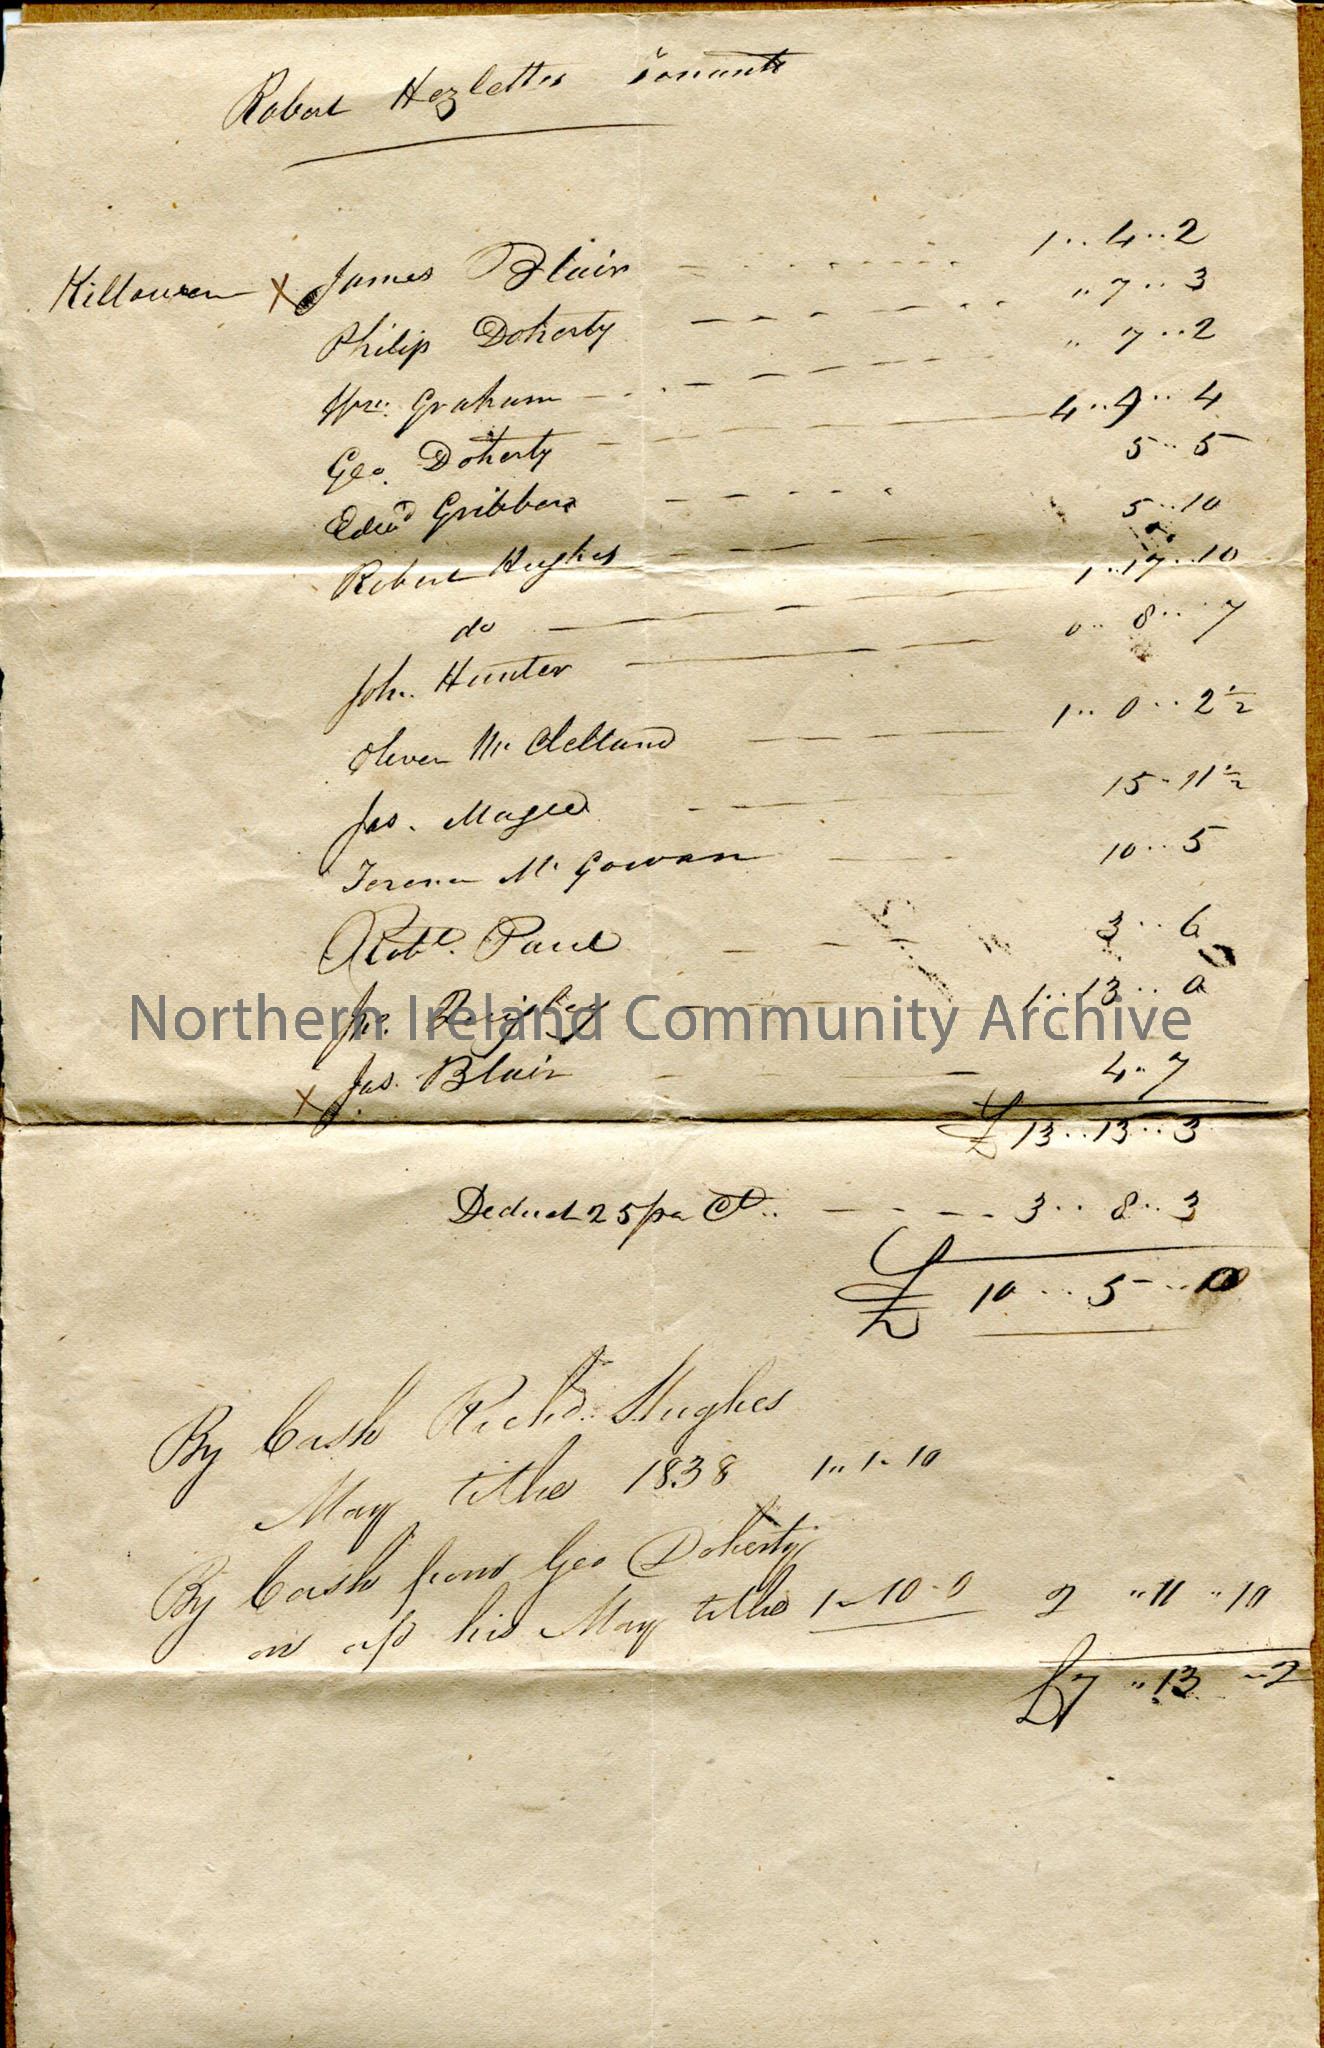 Robert Hezlettes Tenants
Killowen X James Blair 1 .. 4 .. 2
Philip Doherty " 7 .. 3
Wm. Graham " 7 .. 2
Geo. Doherty 4 .. 9 .. 4
Edwd Gribben 5 .. 5
Robert Hughes 5 .. 10
do 1 .. 17 .. 10
John. Hunter 0 .. 8 .. 7
Oliver Mc Clelland 1 .. 0 .. 2 1/2
Jas. Magee 15 - 11 1/2
Terence Mc Gowan 10 .. 5
Robt. Paul 3 .. 6
Jno. Quigley 1 .. 13 .. 0
X Jas. Blair 4 .. 7
£ 13 .. 13 .. 3
Deduct 25 per Ct. 3 .. 8 .. 3
£ 10 .. 5 .. 10
By Cash Richd. Hughes
May tithe 1838 1 .. 1 - 10
By Cash from Geo Doherty
on a/c his May tithe 1 - 10 - 0 2 " 11 " 10
£7 " 13 - 2
Northern Ireland Community Archive